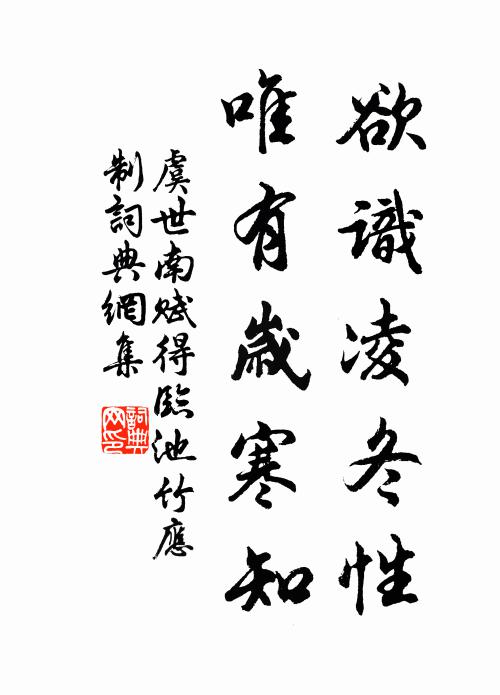 欲識凌冬性
唯有歲寒知
虞世南賦得臨池竹應
制詞典網集
詞典
网印